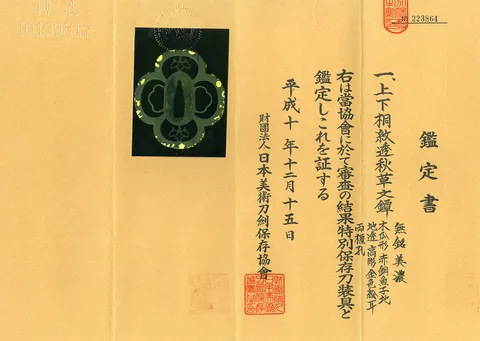 № 223864
鑑定書
一、上下桐紋透秋草文鐔
無銘 美濃
木瓜形 赤銅魚子地
地透 高彫 金色絵 耳
両櫃孔
右は當協會に於て審査の結果特別保存刀装具と
鑑定しこれを証する
平成十年十二月十五日
財團法人日本美術刀劍保存協會